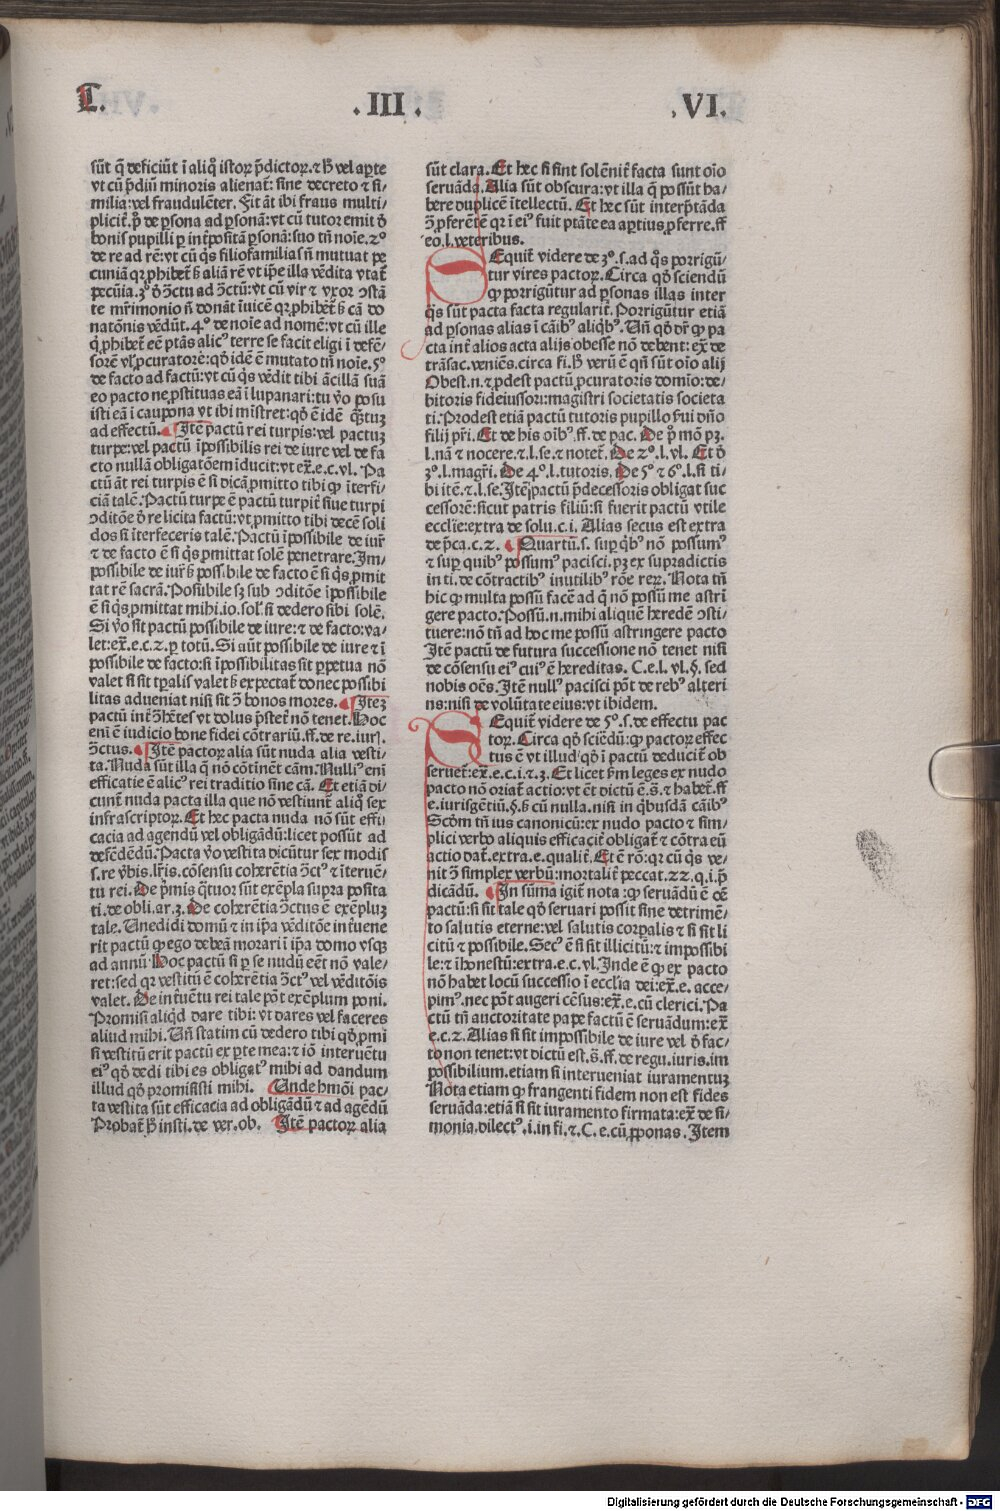 L. .III. .VI.
sūt q̄ deficiūt ī aliq̊ istoꝝ p̄dictoꝝ.⁊ h̄ vel aꝑte
vt cū p̄diū minoris alienat̄: sine decreto ⁊ si⸗
milia: vel fraudulēter. Fit āt ibi fraus multi⸗
de re ad rē: vt cū q̄s filiofamilias ñ mutuat pe
natōnis vēdūt. 4° de noīe ad nomē: vt cū ille
de facto ad factū: vt cū q̄s vēdit tibi ācillā suā
eo pacto ne ꝓstituas eā ī lupanari: tu v̊o posu
isti eā ī caupona vt ibi mīstret: qd̊ ē idē
ad effectū. Itē pactū rei turpis: vel pactuꝫ
turpe: vel pactū īpossibilis rei de iure vel de fa
cto nullā obligatōem īducit: vt ex̄.e.c.vl. Pa
ctū āt rei turpis ē si dicā ꝓmitto tibi ꝙ īterfi⸗
ciā talē. Pactū turpe ē pactū turpit̄ siue turpi
dos si īterfeceris talē. Pactū īpossibile de iur̄
⁊ de facto ē si q̄s ꝓmittat solē penetrare. Im⸗
possibile de iur̄ ꝫ possibile de facto ē si q̄s ꝓmit
tat rē sacrā. Possibile sꝫ sub ɔditōe īpossibile
ē si q̄s ꝓmittat mihi.io.sol̄ si dedero sibi solē.
Si v̊o sit pactū possibile de iure: ⁊ de facto: va⸗
let: ex̄.e.c.2. ꝑ totū. Si aūt possibile de iure ⁊ ī
possibile de facto: si īpossibilitas sit ꝑpetua nō
valet si sit tꝑalis valet ꝫ expectat̄ donec possibi
litas adueniat nisi sit ɔ̄ bonos mores. Iteꝫ
pactū int̄ ɔ̄hētes vt dolus p̄stet̄ nō tenet. Hoc
enī ē iudicio bone fidei cōtrariū.ff.de re.iur.
ɔ̄ctus. Itē pactoꝝ alia sūt nuda alia vesti⸗
ta. Nuda sūt illa q̄ nō cōtinēt cām. Nulliꝰ enī
efficatie ē alicꝰ rei traditio sine cā. Et etiā di⸗
cunt̄ nuda pacta illa que nō vestiunt̄ aliq̊ sex
infrascriptoꝝ. Et hec pacta nuda nō sūt effi
cacia ad agendū vel obligādū: licet possūt ad
defēdēdū. Pacta v̊o vestita dicūtur sex modis
s.re v̄bis.lr̄is.cōsensu coherētia ɔ̄ctꝰ ⁊ īteruē⸗
tu rei. De p̄mis q̄tuor sūt exēpla supra posita
ti.de obli.ar.3. De coherētia ɔ̄ctus ē exēpluꝫ
tale. Uendidi domū ⁊ in ip̄a vēditōe int̄uene
rit pactū ꝙ ego debeā morari ī ip̄a domo vsqꝫ
ad annū Hoc pactū si ꝑ se nudū eēt nō vale⸗
ret: sed qꝛ vestitū ē coherētia ɔ̄ctꝰ vel vēditōis
valet. De int̄uētu rei tale pōt exēplum poni.
Promisi aliqd̄ dare tibi: vt dares vel faceres
aliud mihi. Un̄ statim cū dedero tibi qd̊ ꝓmi
si vestitū erit pactū ex ꝑte mea: ⁊ iō interuētu
eiꝰ qd̊ dedi tibi es obligatꝰ mihi ad dandum
illud qd̊ promisisti mihi. Unde hmōi pac⸗
ta vestita sūt efficacia ad obligādū ⁊ ad agēdū
Probat̄ h̄ insti.de ver.ob. Itē pactoꝝ alia
sūt clara. Et hec si sint solēnit̄ facta sunt oīo
seruāda. Alia sūt obscura: vt illa q̄ possūt ha⸗
bere duplicē ītellectū. Et hec sūt interp̄tāda
ɔ̄ ꝓferētē qꝛ ī eiꝰ fuit ptāte ea aꝑtius ꝓferre.ff
eo.l.veteribus.
SEquit̄ videre de 3°.s.ad q̄s porrigū⸗
tur vires pactoꝝ. Circa qd̊ sciendū
ꝙ porrigūtur ad ꝑsonas illas inter
q̄s sūt pacta facta regularit̄. Porrigūtur etiā
ad ꝑsonas alias ī cāibꝰ aliq̄bꝰ. Un̄ qd̊ dr̄ ꝙ pa
cta int̄ alios acta alijs obesse nō debent: ex̄ de
trāsac. veniēs. circa fi. h̄ verū ē qn̄ sūt oīo alij
Obest.n.⁊ ꝓdest pactū ꝓcuratoris domīo: de⸗
bitoris fideiussori: magistri societatis societa
ti. Prodest etiā pactū tutoris pupillo
filij pr̄i. Et de his oībꝰ.ff.de pac. De p̊ mō pꝫ.
l.nā ⁊ nocere.⁊.l.se.⁊ notet̄. De 2°.l.vl. Et d̄
3°.l.magr̄i. De 4°.l.tutoris. De 5° ⁊ 6°.l.si ti⸗
bi itē.⁊.l.se. Itē pactū p̄decessoris obligat suc
cessorē: sicut patris filiū: si fuerit pactū vtile
ecclīe: extra de solu.c.i. Alias secus est extra
de p̄ca.c.2. Quartū.s. suꝑ q̄bꝰ nō possumꝰ
⁊ suꝑ quibꝰ possumꝰ pacisci. pꝫ ex supradictis
in ti. de cōtractibꝰ inutilibꝰ rōe reꝝ. Nota tn̄
hic ꝙ multa possū facē ad q̄ nō possū me astrī
gere pacto. Possū.n.mihi aliquē heredē ɔsti⸗
tuere: nō tn̄ ad hoc me possū astringere pacto
Itē pactū de futura successione nō tenet nisi
de cōsensu eiꝰ cuiꝰ ē hereditas. C.e.l.vl.§. sed
nobis oēs. Itē nullꝰ pacisci pōt de rebꝰ alteri
ns: nisi de volūtate eius: vt ibidem.
SEquit̄ videre de 5°.s.de effectu pac
toꝝ. Circa qd̊ sciēdū: ꝙ pactoꝝ effec
tus ē vt illud qd̊ ī pactū deducit̄ ob
seruet̄: ex̄.e.c.i.⁊.3. Et licet ẜm leges ex nudo
pacto nō oriat̄ actio: vt ēt dictū ē.s̄.⁊ habet̄.ff
e.iurisgētiū.§.ꝫ cū nulla. nisi in q̄busdā cāibꝰ
Scḋm tn̄ ius canonicū: ex nudo pacto ⁊ sim⸗
plici verbo aliquis efficacit̄ obligat̄ ⁊ cōtra eū
actio dat̄. extra.e.qualit̄. Et ē rō: qꝛ cū q̄s ve⸗
nit ɔ̄ simplex verbū: mortalit̄ peccat.22.q.i.p̄
dicādū. In sūma igit̄ nota: ꝙ seruādū ē oē
pactū: si sit tale qd̊ seruari possit sine detrimē⸗
to salutis eterne: vel salutis corꝑalis ⁊ si sit li
citū ⁊ possibile. Secꝰ ē si sit illicitū: ⁊ impossibi
le: ⁊ īhonestū: extra.e.c.vl. Inde ē ꝙ ex pacto
nō habet locū successio ī ecclīa dei: ex̄.e.acce⸗
pimꝰ. nec pōt augeri cēsus: ex̄.e.cū clerici. Pa
ctū tn̄ auctoritate pape factū ē seruādum: ex̄
e.c.2. Alias si sit impossibile de iure vel d̄ fac⸗
to non tenet: vt dictū est.s̄.ff.de regu.iuris.im
possibilium. etiam si interueniat iuramentuꝫ
Nota etiam ꝙ frangenti fidem non est fides
seruāda: etiā si sit iuramento firmata: ex̄ de si⸗
monia. dilectꝰ.i.in fi.⁊.C.e.cū ꝓponas. Item
Digitalisierung gefördert durch die Deutsche Forschungsgemeinschaft - DFG